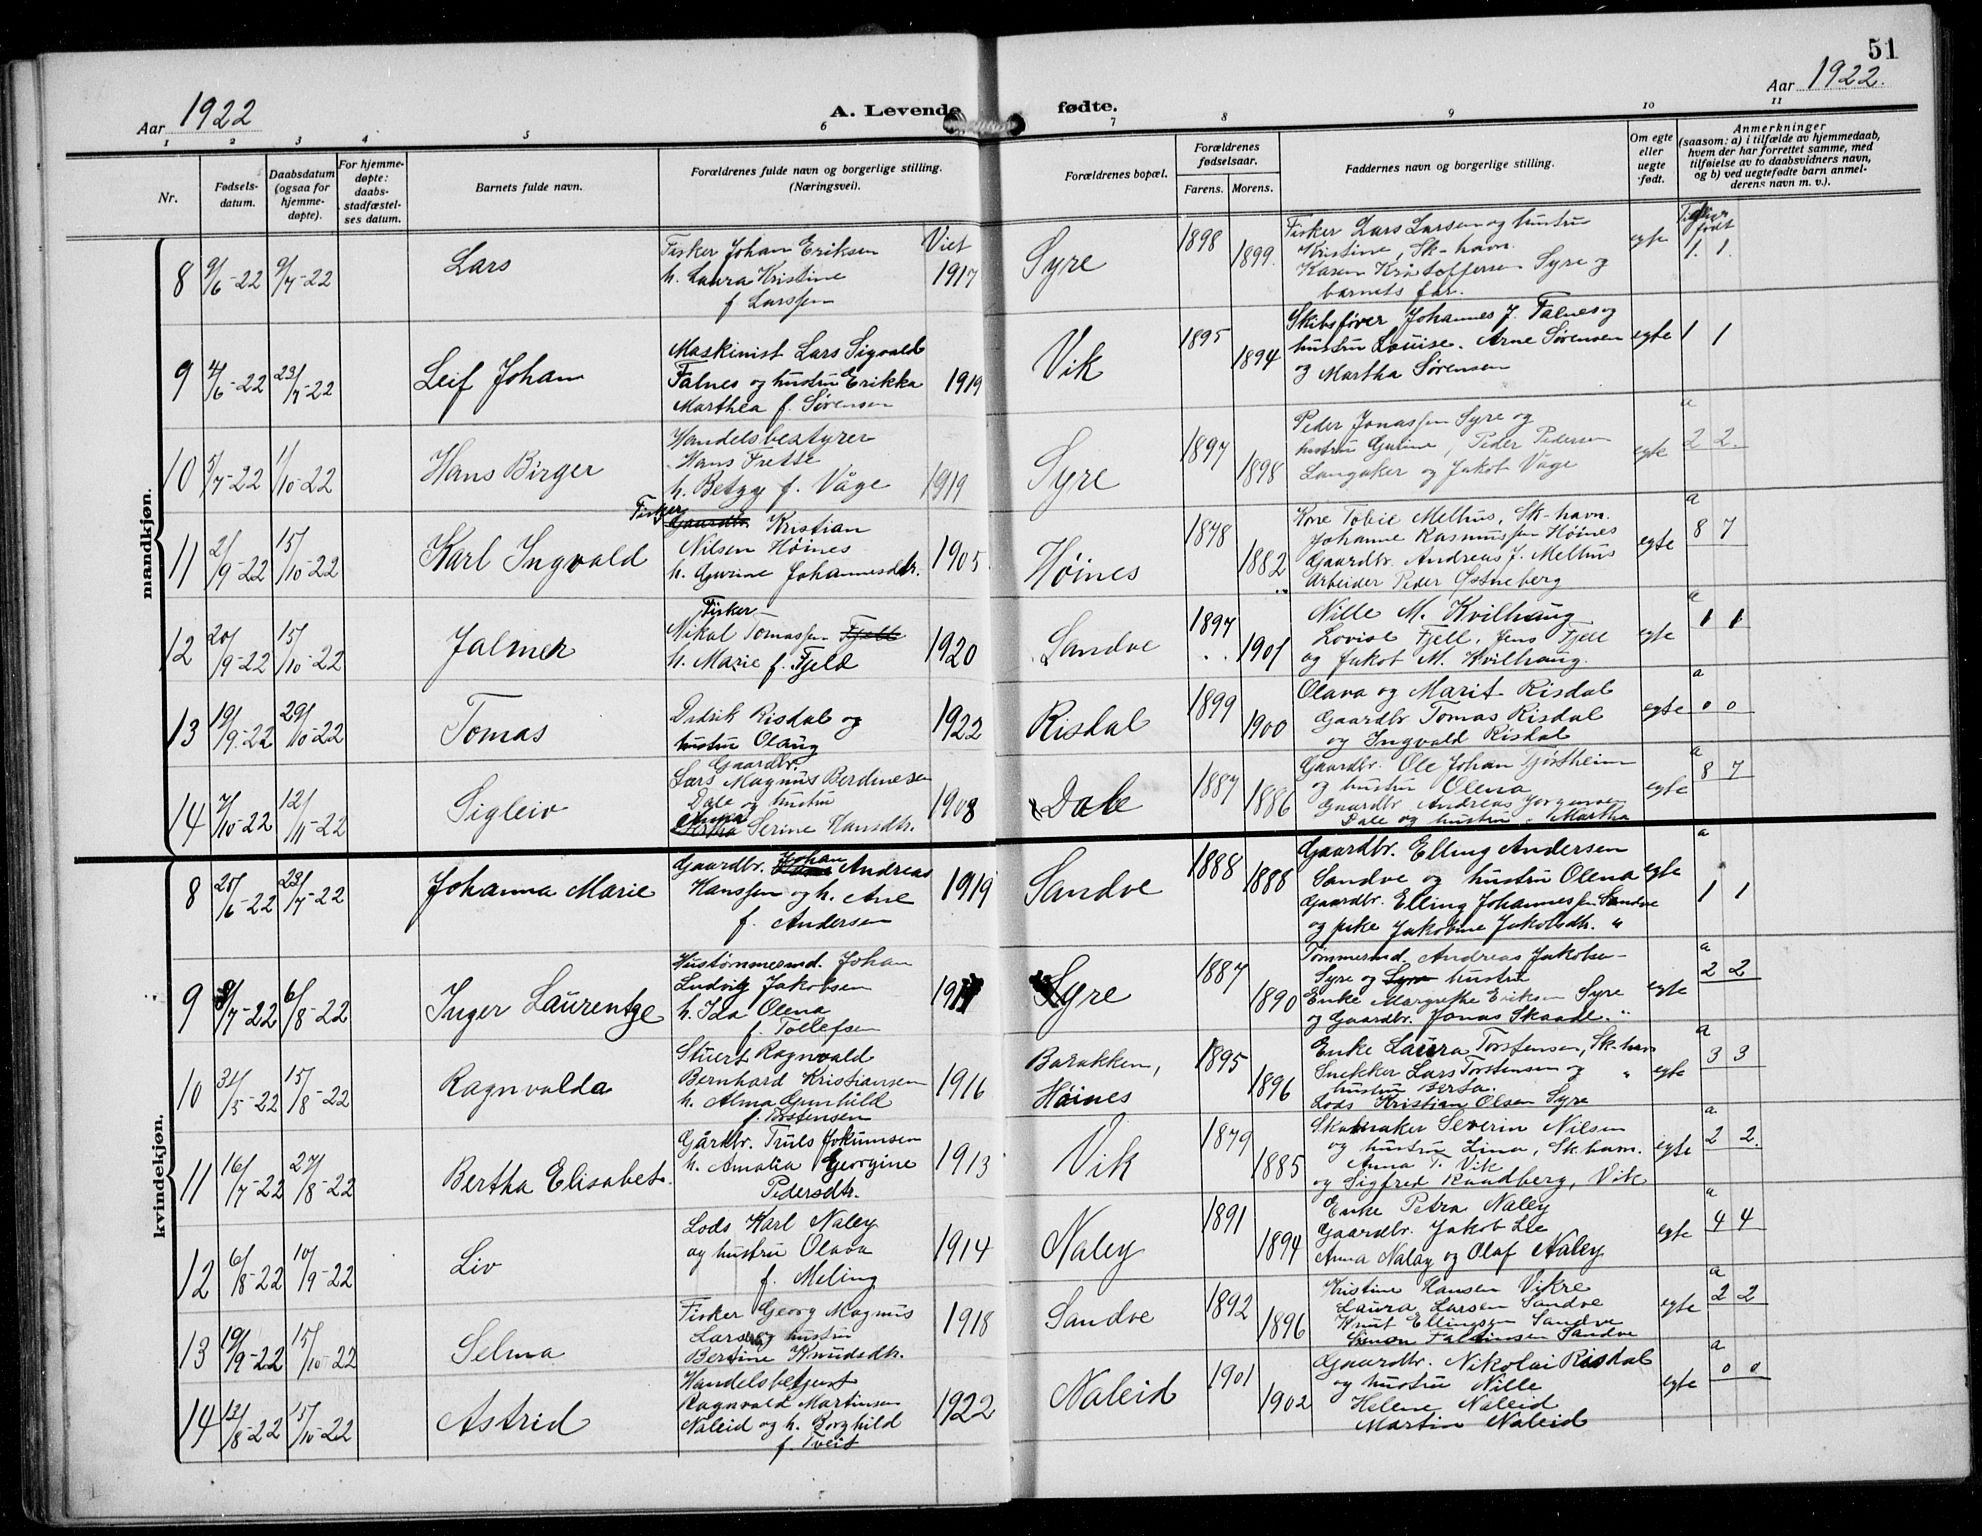 51
Aar 1922
A. Levende fødte.
Aar 1922.
1 2 3 4 5 6 7 8 9 10 11
Nr.
Fødsels-
datum.
Daabsdatum
(ogsaa for
hjemme-
døpte).
For hjemme-
døpte:
daabs-
stadfæstel-
ses datum.
Barnets fulde navn.
Forældrenes fulde navn og borgerlige stilling.
(Næringsvei).
Forældrenes bopæl.
Forældrenes
fødselsaar.
Farens. Morens.
Faddernes navn og borgerlige stilling.
Om egte
eller
uegte
født.
Anmerkninger
(saasom: a) i tilfælde av hjemmedaab,
hvem der har forrettet samme, med
tilføielse av to daabsvidners navn,
og b) ved uegtefødte barn anmel-
derens navn m. v.).
mandkjøn.
8 9/6-22 9/7-22 Lars
Fisker Johan Eriksen
h. Laura Kristine
f Larssen
Viet
1917
Syre
1898 1899.
Fisker Lars Larsen og hustru
Kristine, Sk-havn.
Karen Kristoffersen Syre og
barnets far.
egte
født
1. 1.
9 4/6-22 23/7-22 Leif Johan
Maskinist Lars Sigvald
Falnes og hustru Erikka
Marthea f. Sørensen
1919
Vik
1895 1894
Skibsfører Johannes J. Falnes og
hustru Louise. Arne Sørensen
og Martha Sørensen
egte 1 1
10 5/7-22 1/10-22 Hans Birger
Handelsbestyrer
Hans Frette
h. Betzy f. Våge
1919
Syre
1897 1898
Peder Jonassen Syre og
hustru Guline, Peder Pedersen
Langaker og Jakob Våge
egte
a
2 2.
11 2/9-22 15/10-22 Karl Ingvald
Fisker
Gaardbr. Kristian
Nilsen Høines
h. Gurine Johannesdtr.
1905.
Høines
1878 1882
Kone Tobie Melhus, Sk-havn.
Johanne Rasmussen Høines
Gaardbr. Andreas J. Melhus
Arbeider Peder Østneberg
egte
a
8 7
12 20/9-22 15/10-22 Jalmer
Fisker
Nikal Tomassen Fjell
h. Marie f. Fjeld
1920
Sandve
1897 1901
Nille M. Kvilhaug
Lovise Fjell, Jens Fjell
og Jakob M. Kvilhaug.
egte
a
1 1
13 19/9-22 29/10-22 Tomas
Didrik Risdal og
hustru Olaug
1922
Risdal
1899 1900
Olava og Marit Risdal
Gaardbr Tomas Risdal
og Ingvald Risdal
egte
a
0 0
14 7/10-22 12/11-22 Sigleiv
Gaardbr.
Lars Magnus Berdinesen
Dale og hustru
Anna
Serine Hansdtr.
1908
Dale
1887 1886
Gaardbr. Ole Johan Tjøstheim
og hustru Olena
Gaardbr. Andreas Jørgensen
Dale og hustru Martha
egte
a
8 7
kvindekjøn.
8 20/6-22 23/7-22 Johanna Marie
Gaardbr. Johan Andreas
Hanssen og h. Ane
f. Andersen
1919
Sandve
1888 1888
Gaardbr. Elling Andersen
Sandve og hustru Olena
Gaardbr. Elling Johannessen Sandve
og pike Jakobine Jakobsdtr. "
egte
a
1 1
9 8/7-22 6/8-22 Inger Laurentze
Hustømmermd. Johan
Ludvig Jakobsen
h. Ida Olena
f. Tollefsen
Syre
1887 1890
Tømmermd. Andreas Jakobsen
Syre og Syre hustru
Enke Margrethe Eriksen Syre
og Gaardbr. Jonas Skaadel. "
egte
a
2 2
10 31/5-22 15/8-22 Ragnvalda
Stuert Ragnvald
Bernhard Kristiansen
h. Alma Gunhild
f. Torstensen
1916
Barakken,
Høines
1895 1896
Enke Laura Torstensen, Sk-havn
Snekker Lars Torstensen og "
hustru Berta.
Lods Kristian Olsen Syre
egte
a
3 3
11 16/7-22 27/8-22 Bertha Elisabet.
Gårdbr. Truls Jokumsen
h. Amalia Georgine
Pedersdtr.
1913
Vik
1879 1885
Skomaker Severin Nilsen
og hustru Lina, Sk.havn.
Anna T. Vik
og Sigfred Rundberg, Vik
egte
a
2 2.
12 6/8-22 10/9-22 Liv
Lods Karl Naley
og hustru Olava
f. Meling
1914
Naley
1891 1894
Enke Petra Naley
Gaardbr. Jakob Lie
Anna Naley og Olaf Naley
egte
a
4 4
13 19/9-22 15/10-22 Selma
Fisker Georg Magnus
Larsen og hustru
Bertine Knudsdtr.
1918
Sandve
1892 1896
Kristine Hansen Vikre
Laura Larsen Sandve
Knut Ellingsen Sandve
Simon Falkinsen Sandve
egte
a
2 2
14 13/8-22 15/10-22 Astrid
Handelsbetjent
Ragnvald Martinsen
Naleid og h. Borghild
f. Tveit
1922
Naleid
1901 1902
Gaardbr. Nikolai Risdal
og hustru Nille
Helene Naleid
Martin Naleid
egte
a
0 0